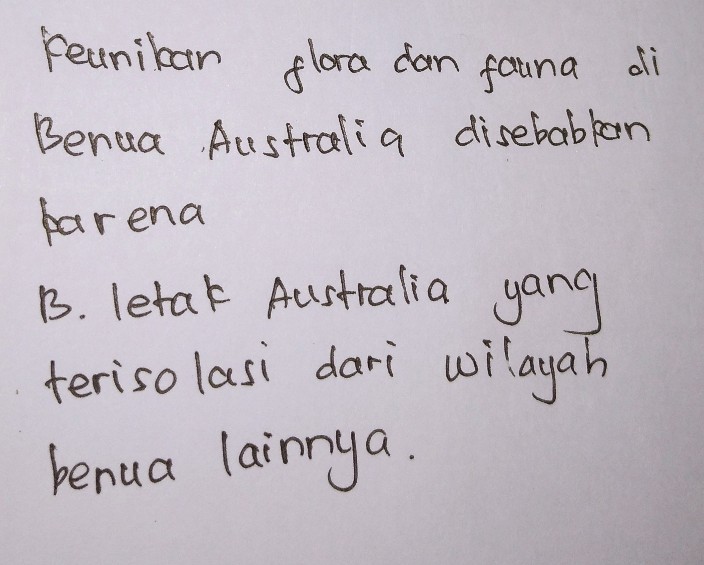 Keunikan flora dan fauna di
Benua Australia disebabkan
karena
B. letak Australia yang
terisolasi dari wilayah
benua lainnya.